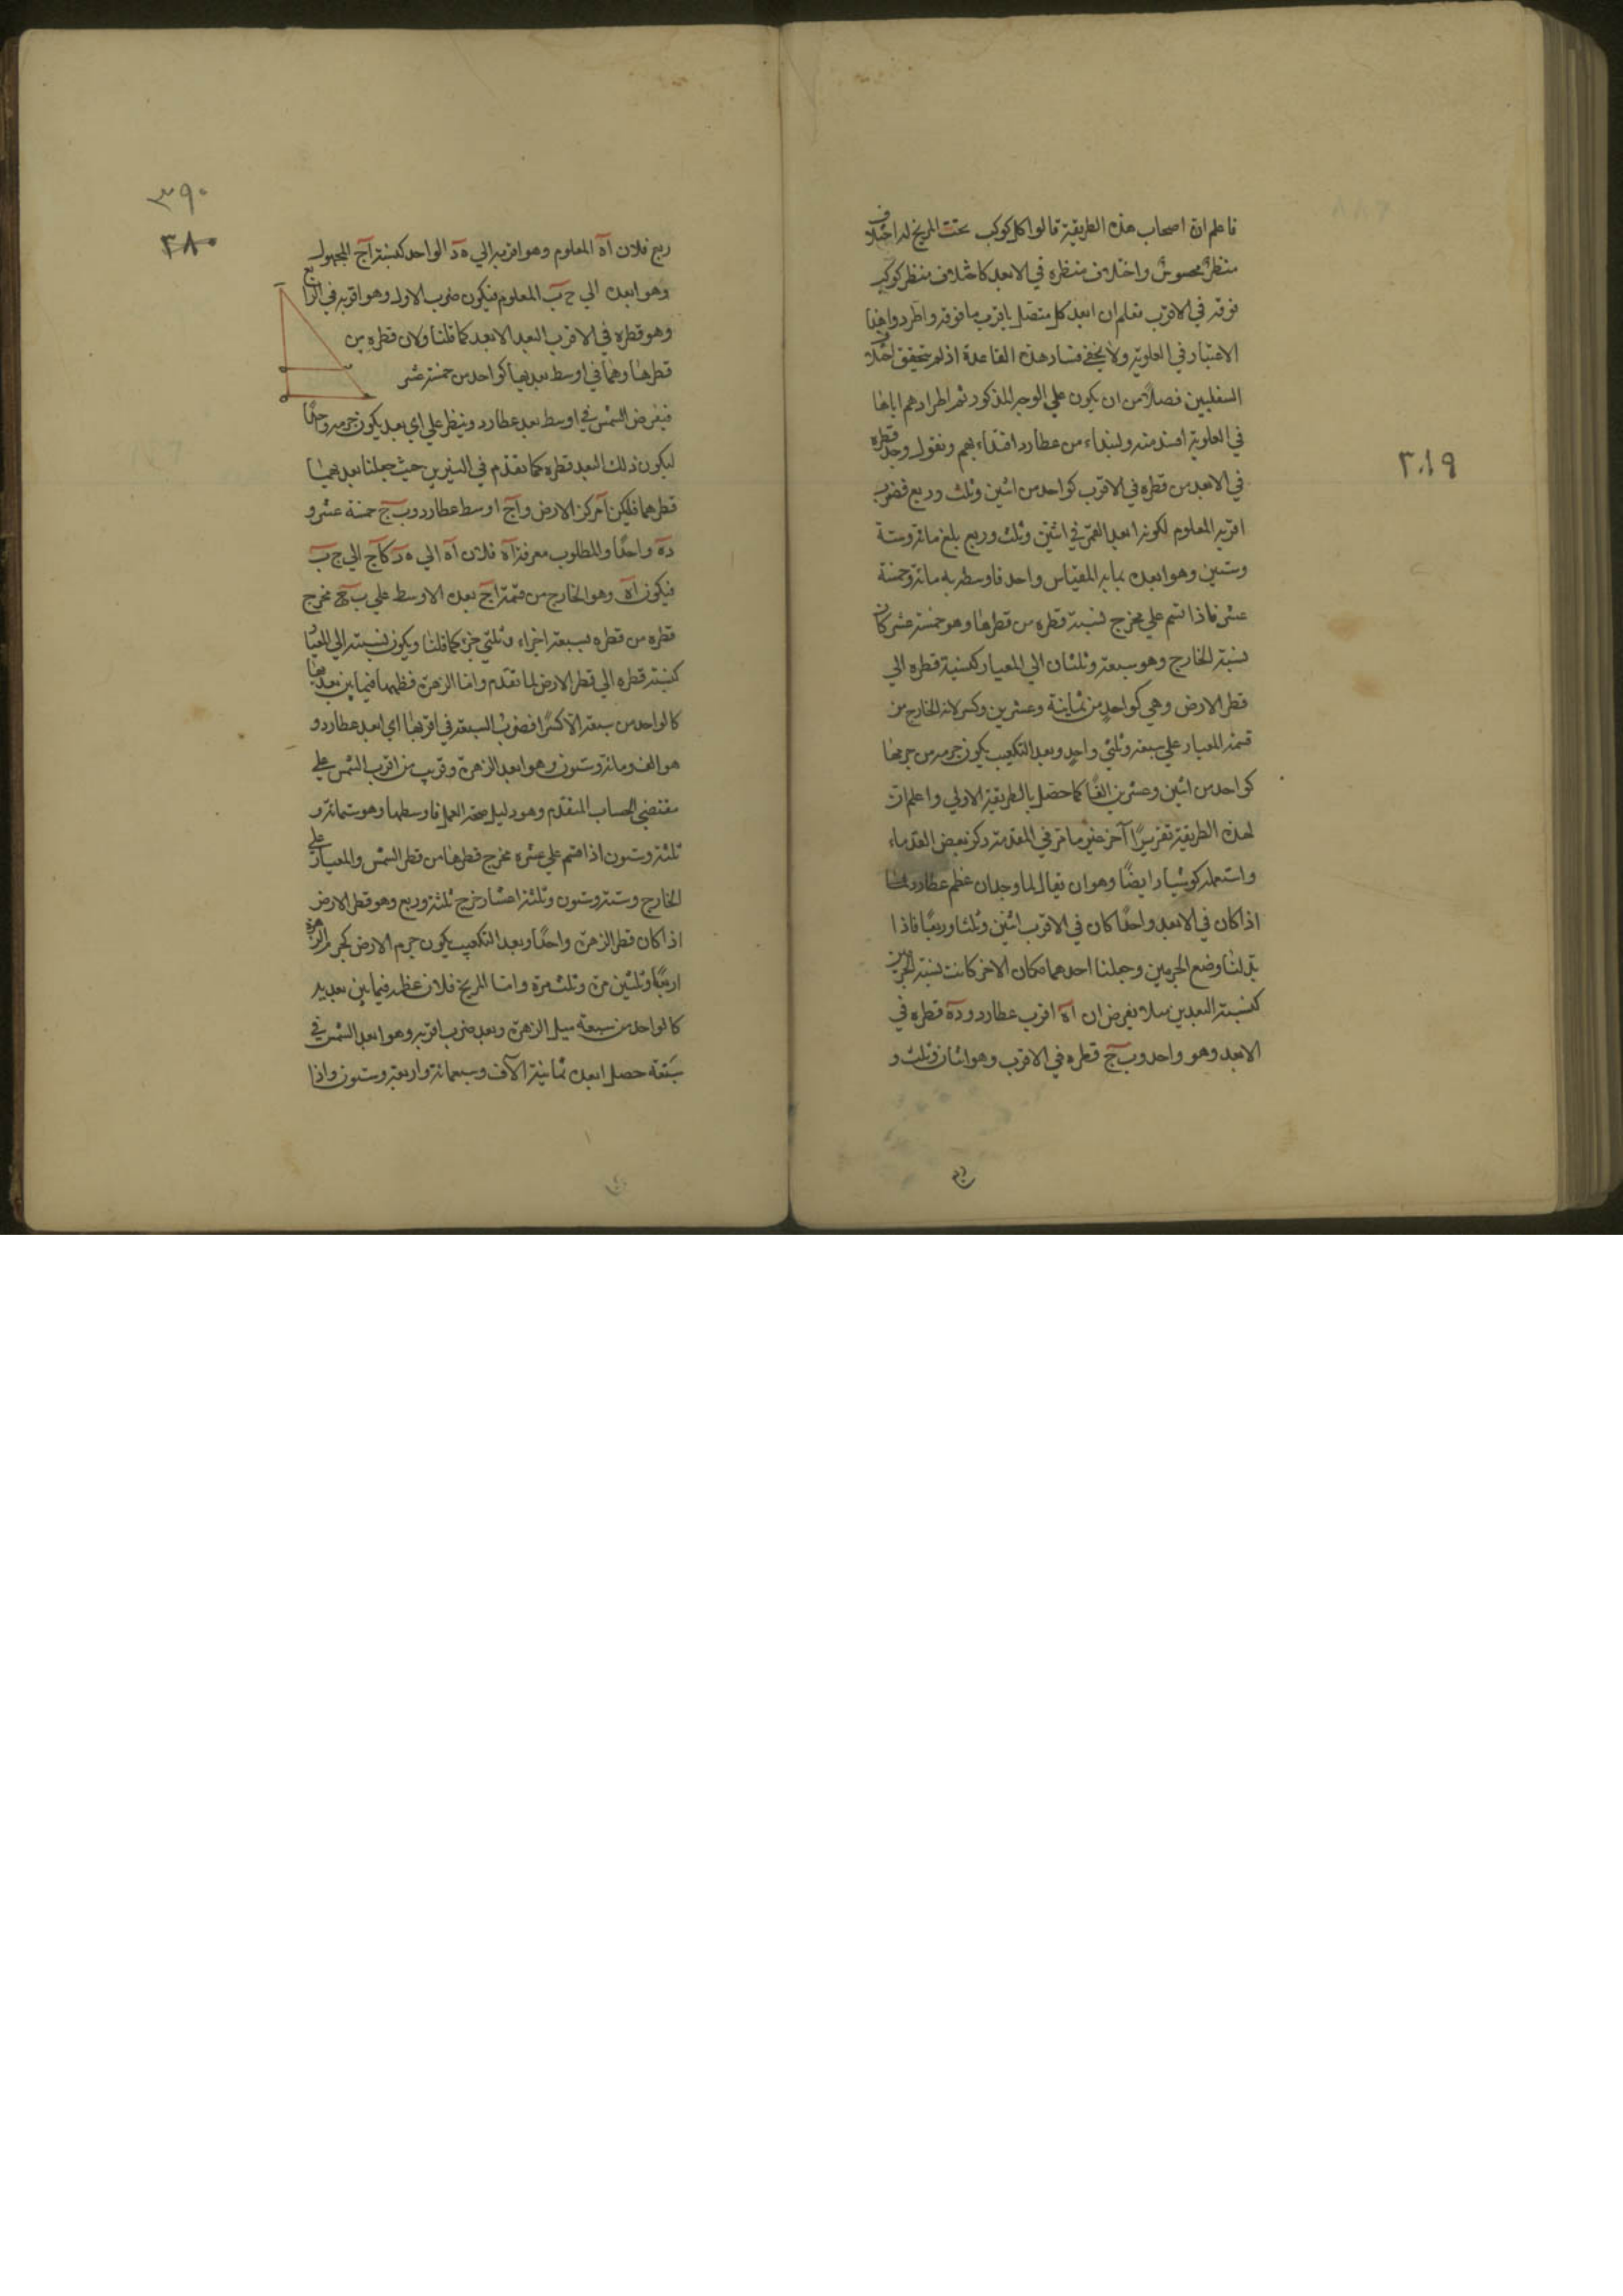 فاعلم ان اصحاب هذه الطريقة قالوا كل كوكب تحت المريخ له اختلاف
منظر محسوس واختلاف منظره في الابعد كاختلاف منظر كوكب
فوقه في الاقرب فعلم ان ابعد كل متصل باقرب ما فوقه واطردوا هذا
الاعتبار في العلوية ولا يخفى فساد هذه القاعدة اذ لم يتحقق اختلاف
السفليين فضلاً من ان يكون علي الوجه المذكور ثم اطرادهم اياها
في العلوية افسد منه ولنبداء من عطارد اقتداء بهم ونقول وجد قطره
في الابعد من قطره في الاقرب كواحد من اثنين وثلث وربع فضرب
اقربه المعلوم لكونه ابعد القمر في اثنين وثلث وربع بلغ مائة وستة
وستين وهو ابعده بما به المقياس واحد فاوسطه به مائة وخمسة
عشر فاذا قسم علي مخرج نسبة قطره من قطرها وهو خمسة عشر كان
نسبة الخارج وهو سبعة وثلثان الي المعيار كنسبة قطره الي
قطر الارض وهي كواحد من ثمانية وعشرين وكسر لانه الخارج من
قسمة المعيار علي سبعة وثلثي واحد وبعد التكعيب يكون جرمه من جرمها
كواحد من اثنين وعشرين الفًا كما حصل بالطريقة الاولي واعلم ان
لهذه الطريقة تقريرًا آخر غير ما مر في المقدمة ذكره بعض القدماء
واستعمله كوشيار ايضًا وهو ان يقال لما وجد ان عظم عطارد
اذا كان في الابعد واحدًا كان في الاقرب اثنين وثلثا وربعًا فاذا
بدلنا وضع الجرمين وجعلنا احدهما مكان الاخر كانت نسبة الجرمين
كنسبة البعدين مثلا نفرض ان آه اقرب عطارد ودآه قطره في
الابعد وهو واحد وب ج قطره في الاقرب وهو اثنان وثلث و
٣٨٩
٣٩٠
٣٨٠
ربع فلان آه المعلوم وهو اقربه الي ه د الواحد كنسبة آج المجهول
وهو ابعده الي ج ب المعلوم فيكون ضرب الاول وهو اقربه في الرابع
وهو قطره في الاقرب البعد الابعد كما قلنا ولان قطره من
قطرها وهما في اوسط بعديهما كواحد من خمسة عشر
فيفرض الشمس في اوسط بعد عطارد وينظر علي اي بعد يكون جرمه واحدًا
ليكون ذلك البعد قطره كما تقدم في النيرين حيث جعلنا بعديهما
قطرهما فليكن آ مركز الارض وآج اوسط عطارد وب ج خمسة عشر و
ده واحدًا والمطلوب معرفة آه فلان آه الي ه د كآج الي ج ب
فيكون آه وهو الخارج من قسمة آج بعده الاوسط علي ب ج مخرج
قطره من قطره بسبعة اجزاء وثلثي جزء كما قلنا ويكون نسبته الي المعيار
كنسبة قطره الي قطر الارض لما تقدم واما الزهرة فظهر ما فيما بين بعديها
كالواحد من سبعة الا كسرًا فضرب السبعة في اقربها اي ابعد عطارد و
هو الف ومائة وستون وهو ابعد الزهرة وقريب من اقرب الشمس علي
مقتضى الحساب المتقدم وهو دليل صحة العمل فاوسطها وهو ستمائة و
ثلثة وستون اذا قسم علي عشرة مخرج قطرها من قطر الشمس والمعيار علي
الخارج وستة وستون وثلثة اعشار خرج ثلثة وربع وهو قطر الارض
اذا كان قطر الزهرة واحدًا وبعد التكعيب يكون جرم الارض كجرم الزهرة
اربعًا وثلثين مرة وثلث مرة واما المريخ فلان عظمه فيما بين بعديه
كالواحد من سبعة مثل الزهرة وبعد ضرب اقربه وهو ابعد الشمس في
سبعة حصل ابعده ثمانية الآف وسبعمائة واربعة وستون واذا